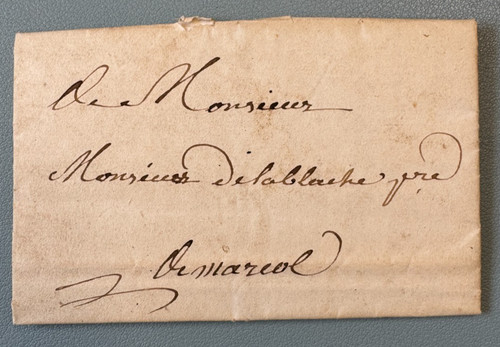 De Monsieur
Monsieur delablache pre
De marcol